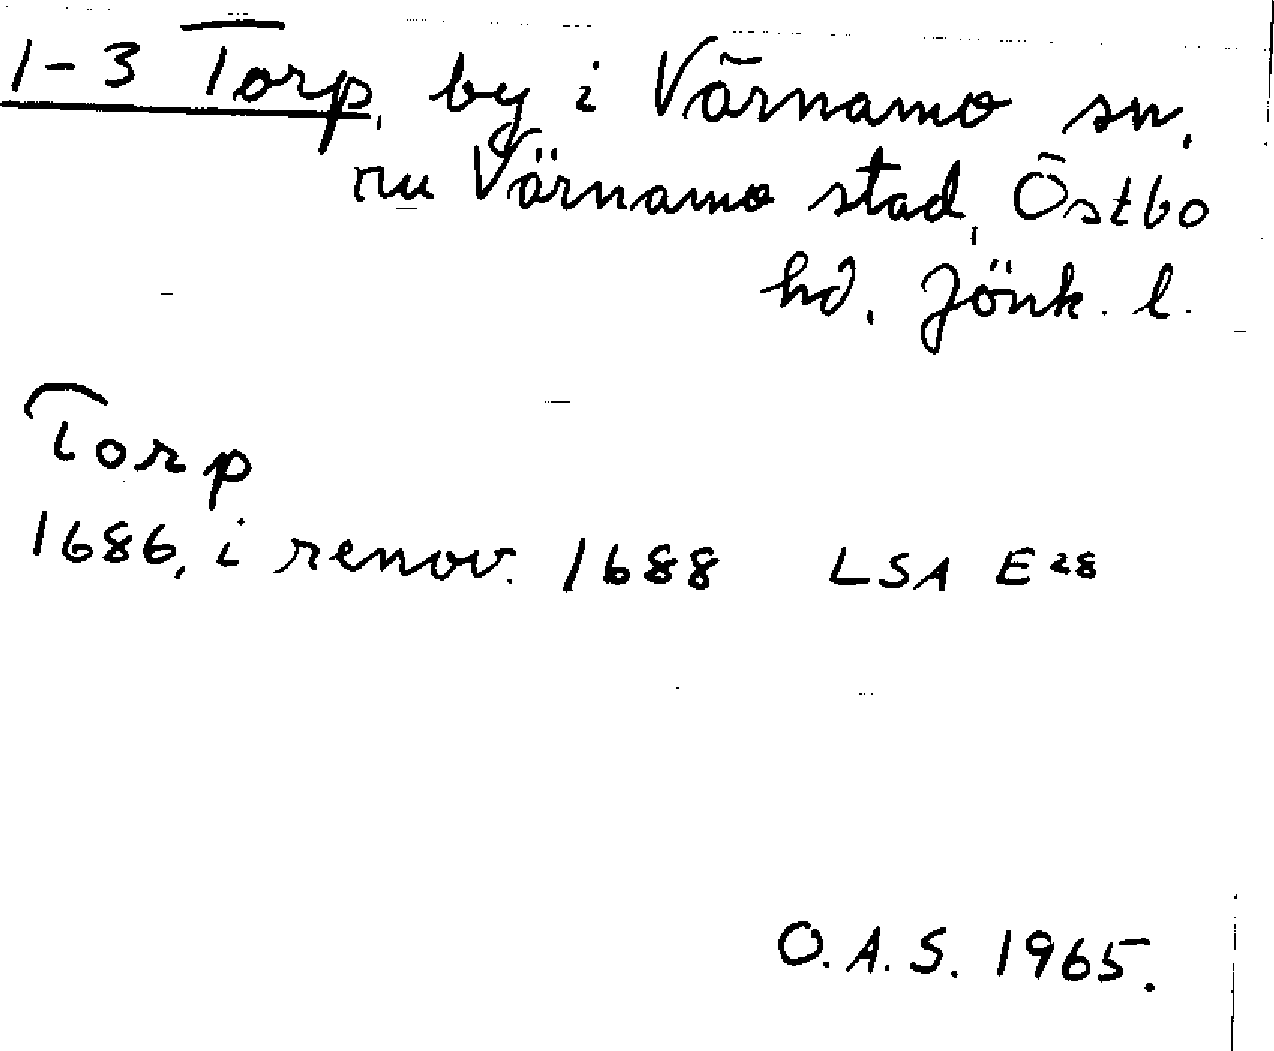 1-3 Torp, by i Värnamo sn,
nu Värnamo stad, Östbo
hd, Jönk. l.
Torp
1686, i renov. 1688 LSA E28
O.A.S. 1965.